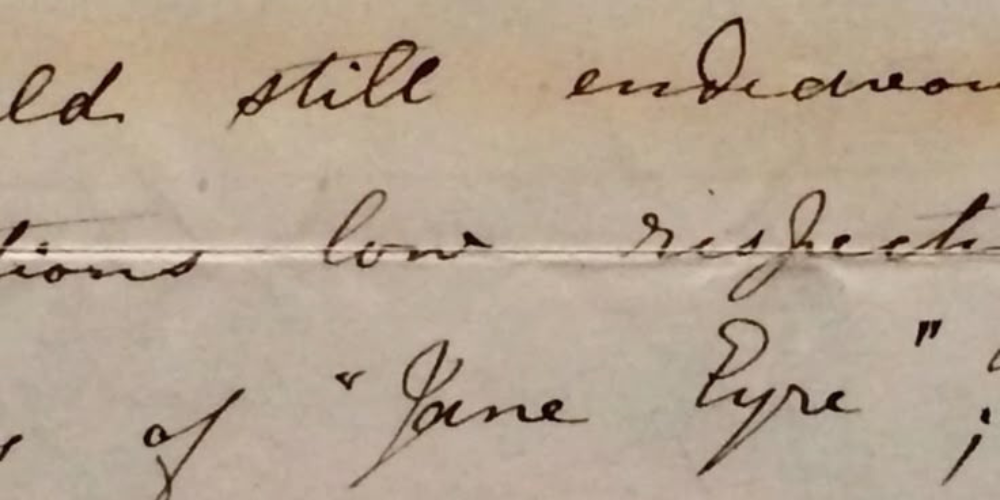 ld still endeavou
tions low respect
of "Jane Eyre";